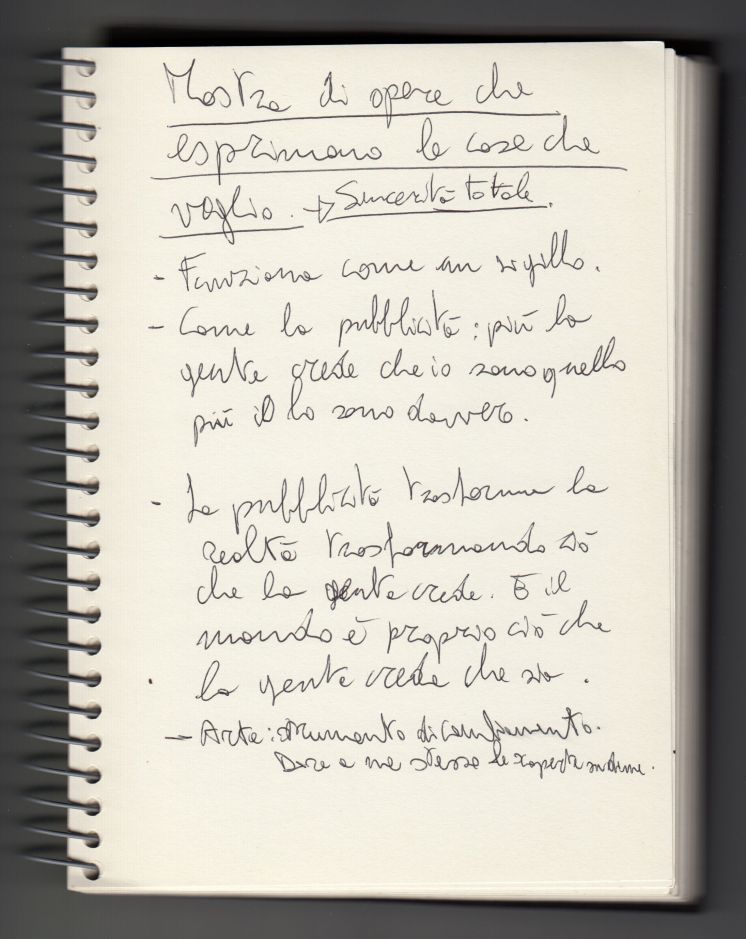 Mostra di opere che
esprimano le cose che
voglio. → Sincerità totale.
- Funziona come un sigillo.
- Come la pubblicità: più la
gente crede che io sono quello
più io lo sono davvero.
- La pubblicità trasforma la
realtà trasformando ciò
che la gente crede. E il
mondo è proprio ciò che
la gente crede che sia.
- Arte: strumento di cambiamento.
Dare a me stesso le